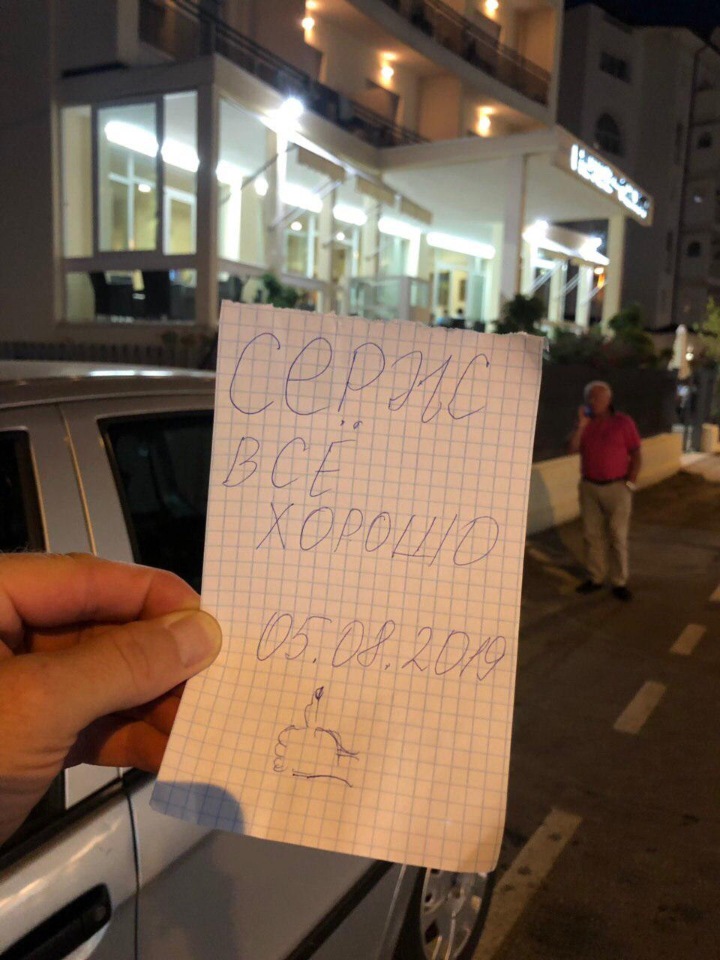 СЕРЖС
ВСЁ
ХОРОШО
05.08.2019